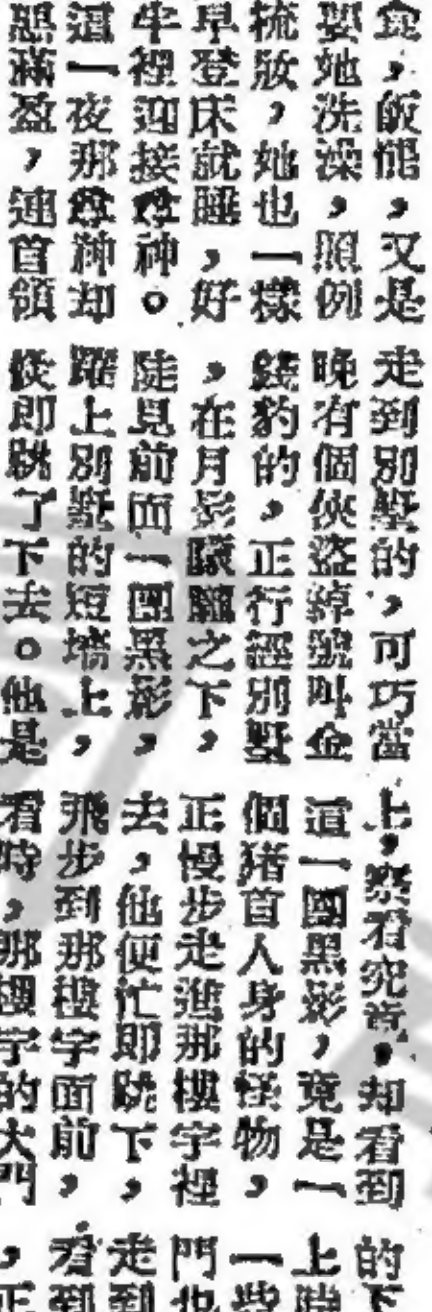 食，飯能，又是
要她洗澡，照例
梳妝，她也一樣
早登床就睡，好
牛裡迎接尊神。
這一夜那尊神却
惡滿盈，連首領
走到別墅的，可巧當
晚有個俠盜綽號叫金
錢豹的，正行經別墅
，在月影朦朧之下，
陡見前面一團黑影，
躍上別墅的短墻上，
倏即跳了下去。他是
上，察看究竟，却看到
這一團黑影，竟是一
個猪首人身的怪物，
正慢步走進那樓宇裡
去，他便忙即跳下，
飛步到那樓宇面前，
看時，那樓宇的大門
的下
上
一些
門也
走到
看到
，正